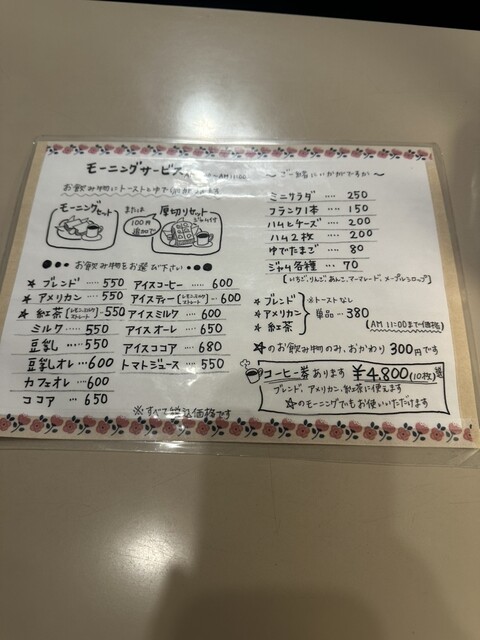 モーニングサービス ～AM11:00
お飲み物にトーストとゆで
モーニングセット
または
100円
追加で
厚切りセット
ジャム付
●●● お飲み物をお選び下さい ●●●
★ ブレンド … 550
★ アメリカン … 550
★ 紅茶 [レモン.ミルク ストレート] … 550
ミルク …… 550
豆乳 …… 550
豆乳オレ … 600
カフェオレ … 600
ココア … 650
アイスコーヒー … 600
アイスティー [レモン.ミルク ストレート] … 600
アイスミルク … 600
アイスオーレ … 650
アイスココア … 680
トマトジュース … 550
※すべて税込価格です
～ ご一緒にいかがですか ～
ミニサラダ … 250
フランク1本 … 150
ハムとチーズ … 200
ハム2枚 … 200
ゆでたまご … 80
ジャム各種 … 70
[いちご.りんご.あんこ.マーマレード.メープルシロップ]
★ ブレンド ※トーストなし
★ アメリカン 単品… 380
★ 紅茶 (AM 11:00まで価格)
★のお飲み物のみ、おかわり 300円です
コーヒー券あります ¥4,800(10枚)
ブレンド、アメリカン、紅茶に使えます
★のモーニングでもお使いいただけます